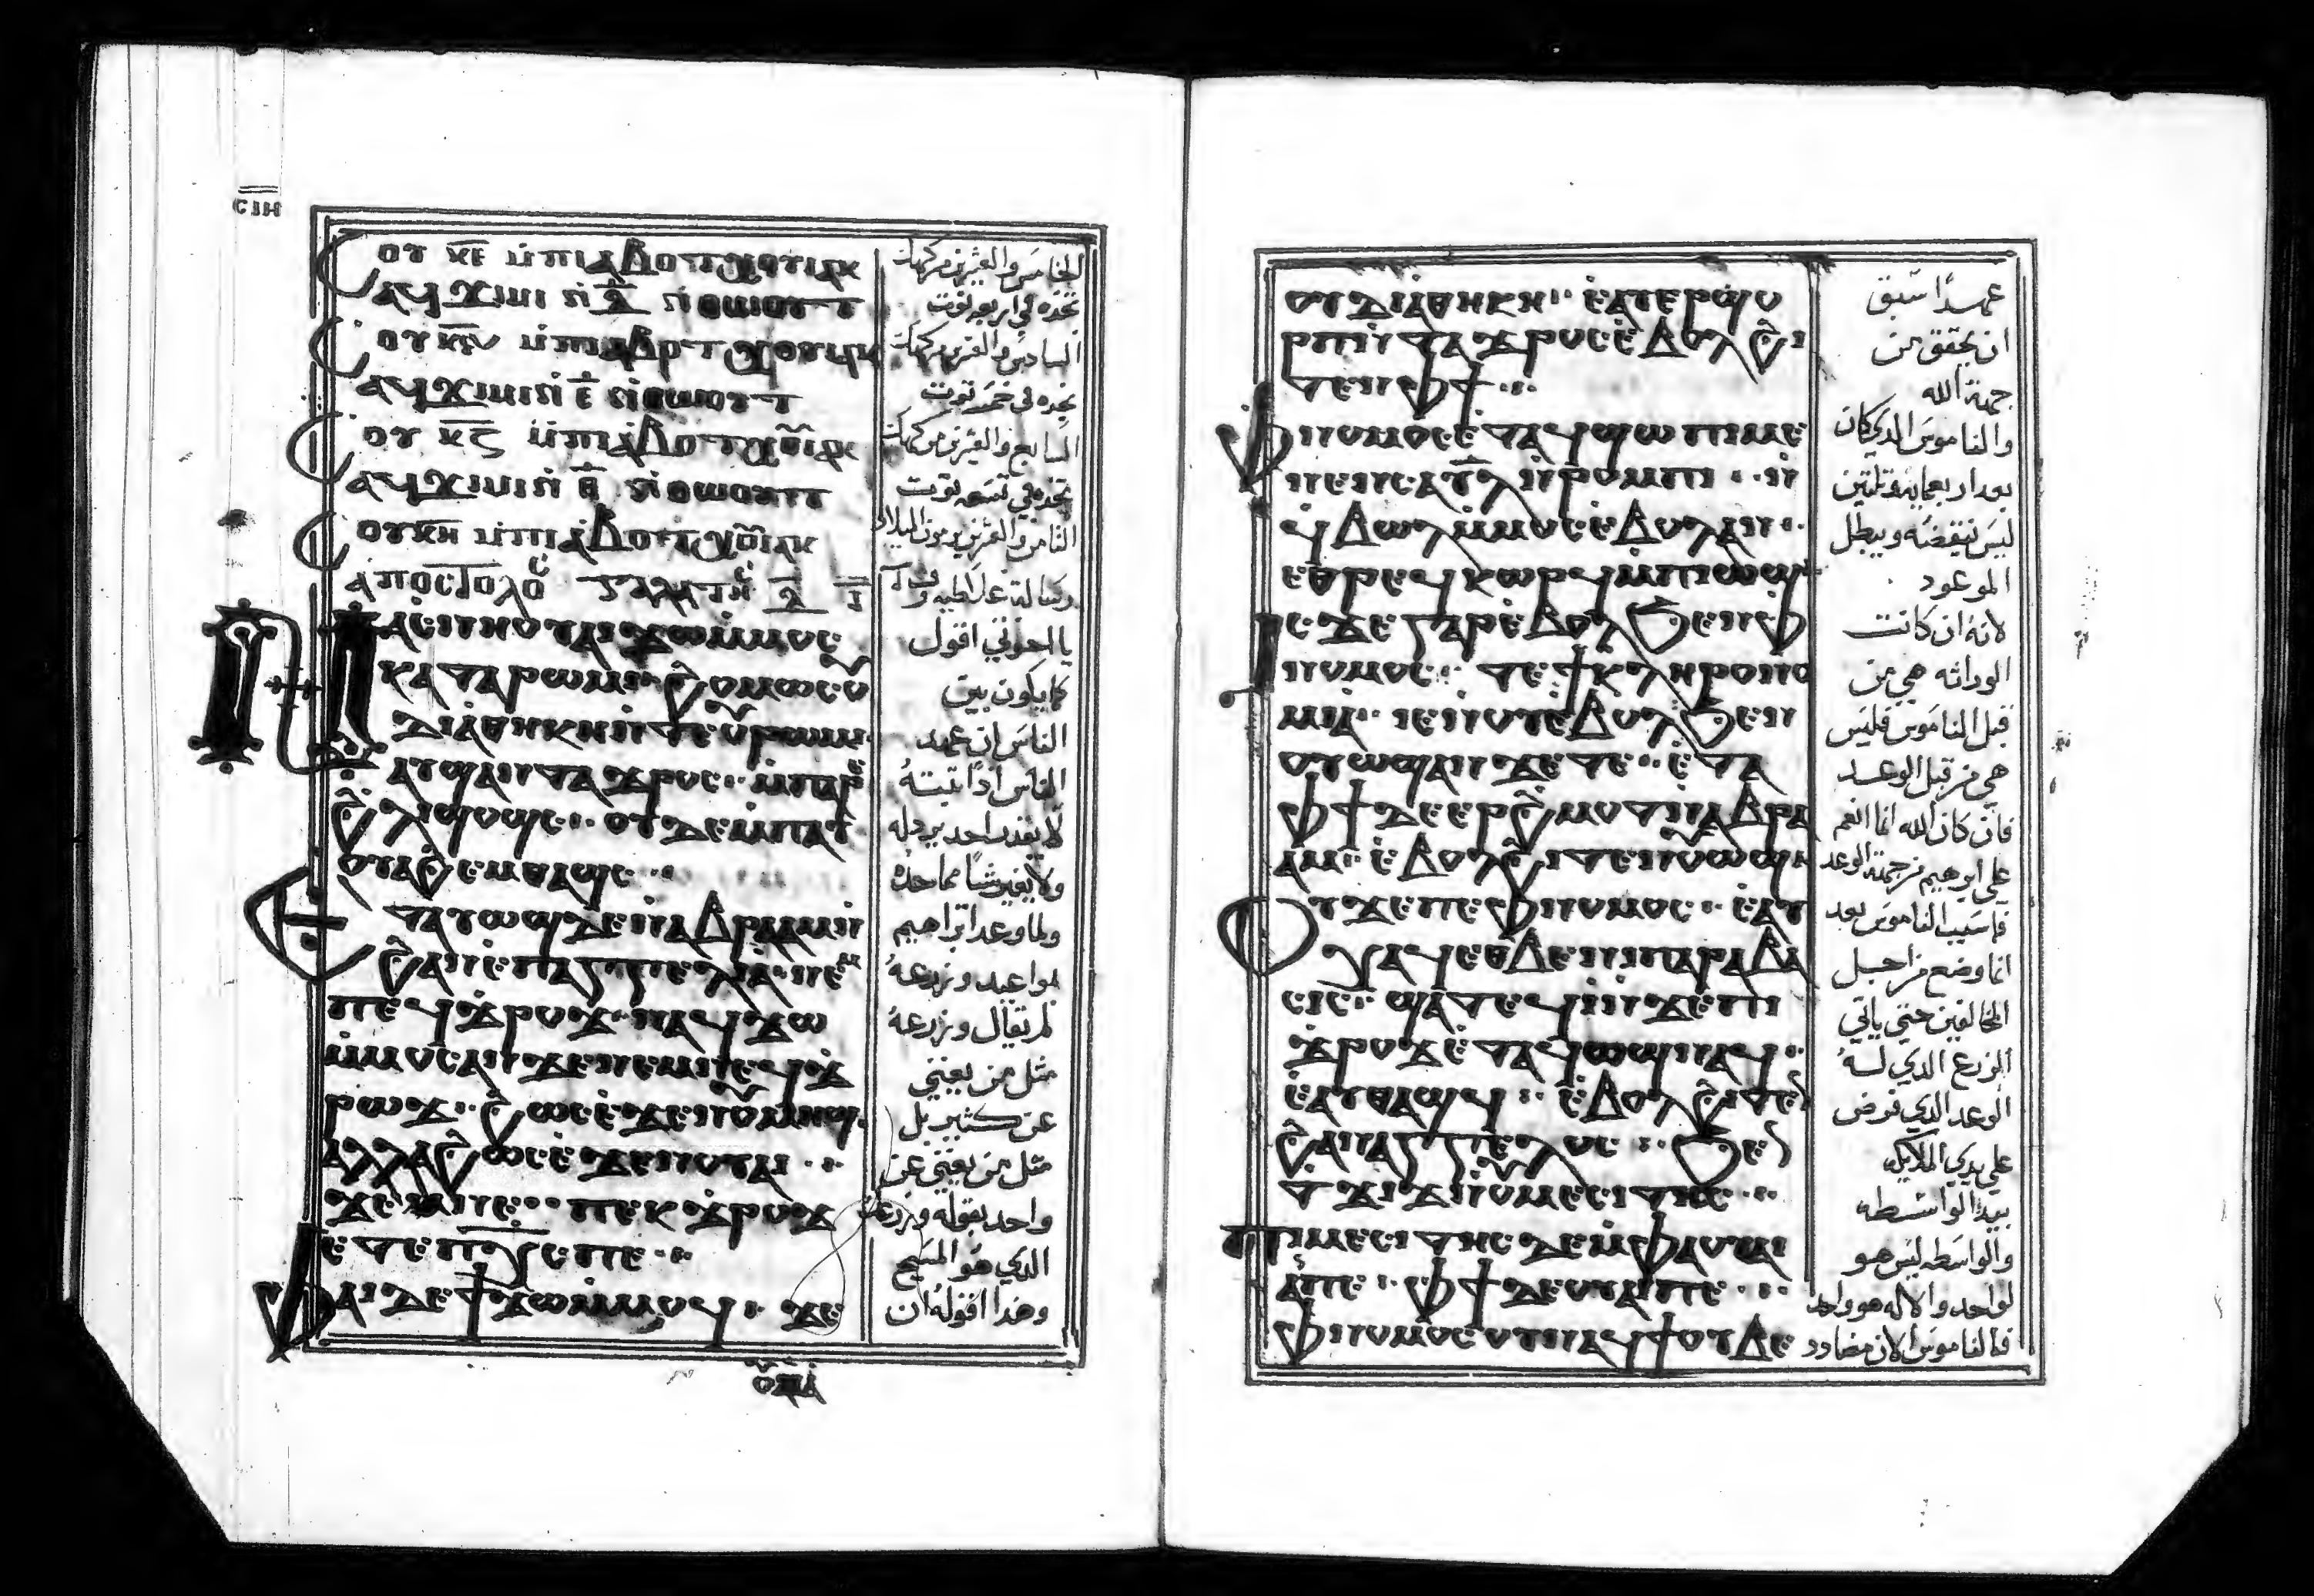 ⲥⲓⲏ
ⲥⲟⲩ ⲕⲉ ⲙ̀ⲡⲓⲁ̀ⲃⲟⲧ ⲭⲟⲓⲁⲕ
ⲁϥϫⲓⲙⲓ ⲛ̀ ⲇ̅ ⲛ̀ⲑⲱⲟⲩⲧ
ⲥⲟⲩ ⲙ̀ⲡⲓⲁⲃⲟⲧ ⲭⲟⲓⲁⲕ
ⲁϥϫⲓⲙⲓ ⲛ̀ ⲉ̅ ⲛ̀ⲑⲱⲟⲩⲧ
ⲥⲟⲩ ⲕⲍ ⲙ̀ⲡⲓⲁ̀ⲃⲟⲧ ⲭⲟⲓⲁⲕ
ⲁϥϫⲓⲙⲓ ⲛ̀ ⲑ̅ ⲛ̀ⲑⲱⲟⲩⲧ
ⲥⲟⲩ ⲕⲏ ⲙ̀ⲡⲓⲁ̀ⲃⲟⲧ ⲭⲟⲓⲁⲕ
ⲁⲡⲟⲥⲧⲟⲗⲟⲥ ⲅⲁⲗⲁⲧⲏⲥ
ⲛⲁⲥⲛⲏⲟⲩ ⲁⲓϫⲱ ⲙ̀ⲙⲟⲥ
ⲕⲁⲧⲁ ⲣⲱⲙⲓ ϩⲟⲙⲱⲥ ⲟⲩ
ⲇⲓⲁⲑⲏⲕⲏ ⲛ̀ⲧⲉ ⲟⲩⲣⲱⲙⲓ
ⲁⲩϣⲁⲛⲧⲁϫⲣⲟⲥ ⲙ̀ⲡⲁⲣⲉ
ϩⲗⲓ ϣⲟϣⲥ ⲟⲩⲇⲉ ⲙ̀ⲡⲁⲩ
ⲟⲩⲁϩⲉⲙ ⲑⲁϣⲥ
ⲉⲧⲁⲩⲱϣ ⲇⲉ ⲛ̀ⲁⲃⲣⲁⲁⲙ ⲛ̀
ϩⲁⲛⲉ̀ⲡⲁⲅⲅⲉⲗⲓⲁ ⲛⲉⲙ
ⲡⲉϥϫⲣⲟϫ ⲛⲁϥϫⲱ
ⲙ̀ⲙⲟⲥ ⲁⲛ ϫⲉ ⲛⲉⲙ ⲛⲉϥϫ̀
ⲣⲱϫ ϩⲱⲥ ⲉ̀ϫⲉⲛ ⲟⲩⲙⲏϣ
ⲁⲗⲗⲁ ϩⲱⲥ ⲉ̀ϫⲉⲛ ⲟⲩⲁⲓ
ϫⲉ ⲛⲉⲙ ⲡⲉⲕϫⲣⲟϫ
ⲉⲧⲉ ⲡⲭ̅ⲥ ⲡⲉ
ⲫⲁⲓ ⲇⲉ ϯϫⲱ ⲙ̀ⲙⲟϥ ϫⲉ
تجده في اربعه توت
تجده في خمسه توت
تجده في تسعه توت
يا اخوتي اقول
كما يكون بين
الناس ان عهد
الناس اذا تبته
لا يقدر احد يردله
ولا يغير شيا مما حده
ولما وعد ابراهيم
بمواعيد وزرعه
لم يقال وزرعه
مثل من يعني
عن كثير بل
مثل من يعني عن
واحد بقوله وزرعك
الدي هو المسيح
وهذا اقوله ان
ⲟⲩⲇⲓⲁⲑⲏⲕⲏ ⲉ̀ⲁⲩⲉⲣϣⲟ
ⲣⲡ ⲛ̀ⲧⲁϫⲣⲟⲥ ⲉ̀ⲃⲟⲗ ϩⲓ
ⲧⲉⲛ ⲫϯ
ⲫⲛⲟⲙⲟⲥ ⲉ̀ⲧⲁϥϣⲱⲡⲓ ⲙⲉ
ⲛⲉⲛⲥⲁ ⲩⲗ ⲛ̀ⲣⲟⲙⲡⲓ ⲛ̀
ϥⲃⲱⲗ ⲙ̀ⲙⲟⲥ ⲉ̀ⲃⲟⲗ ⲁⲛ
ⲉⲑⲣⲉϥⲕⲱⲣϥ ⲙ̀ⲡⲓⲱϣ
ⲓⲥϫⲉ ⲅⲁⲣ ⲉ̀ⲃⲟⲗ ϧⲉⲛ ⲫ
ⲛⲟⲙⲟⲥ ⲧⲉ ϯⲕⲗⲏⲣⲟⲛⲟ
ⲙⲓⲁ ⲓⲉ ⲛⲟⲩⲉ̀ⲃⲟⲗ ϧⲉⲛ
ⲟⲩⲱϣ ⲁⲛ ϫⲉ ⲧⲉ ⲉ̀ⲧⲁ
ⲫϯ ⲇⲉ ⲉⲣϩⲙⲟⲧ ⲛⲁⲃⲣⲁ
ⲁⲙ ⲉ̀ⲃⲟⲗ ϩⲓⲧⲉⲛ ⲟⲩⲱϣ
ⲟⲩ ϫⲉ ⲡⲉ ⲫⲛⲟⲙⲟⲥ ⲉ̀ⲁⲩ
ⲭⲁϥ ⲉⲑⲃⲉ ⲛⲓⲡⲁⲣⲁⲃⲁ
ⲥⲓⲥ ϣⲁⲧⲉϥⲓ̀ ⲛ̀ϫⲉ ⲡⲓ
ϫⲣⲟϫ ⲉ̀ⲧⲁϥⲱϣ ⲛⲁϥ
ⲉ̀ⲁⲩⲑⲁϣϥ ⲉ̀ⲃⲟⲗ ϩⲓⲧⲉⲛ
ϩⲁⲛⲁⲅⲅⲉⲗⲟⲥ ϧⲉⲛ
ⲧϫⲓϫ ⲛ̀ⲟⲩⲙⲉⲥⲓⲧⲏⲥ
ⲡⲓⲙⲉⲥⲓⲧⲏⲥ ⲇⲉ ⲙ̀ⲫⲁ ⲟⲩⲁⲓ
ⲁⲛ ⲡⲉ ⲫϯ ⲇⲉ ⲟⲩⲁⲓ ⲡⲉ
ⲫⲛⲟⲙⲟⲥ ⲟⲩⲛ ⲁϥϯ ⲟⲩⲃⲉ
عهدًا سبق
ان يحقق من
جهة الله
والناموس الدي كان
بعد اربعمايه وتلتين
ليس ينقضه ويبطل
الموعود
لانه ان كانت
الوراثه هي من
قبل الناموس فليس
هي من قبل الوعد
فان كان الله انما انعم
على ابرهيم من جهة الوعد
فما سبب الناموس بعد
انما وضع من اجل
المخالفين حتى ياتي
الزرع الدي له
الوعد الدي فرض
على يدي الملايكه
بيد الواسطه
والواسطه ليس هو
لواحد والاله هو واحد
فالناموس الان مضادد